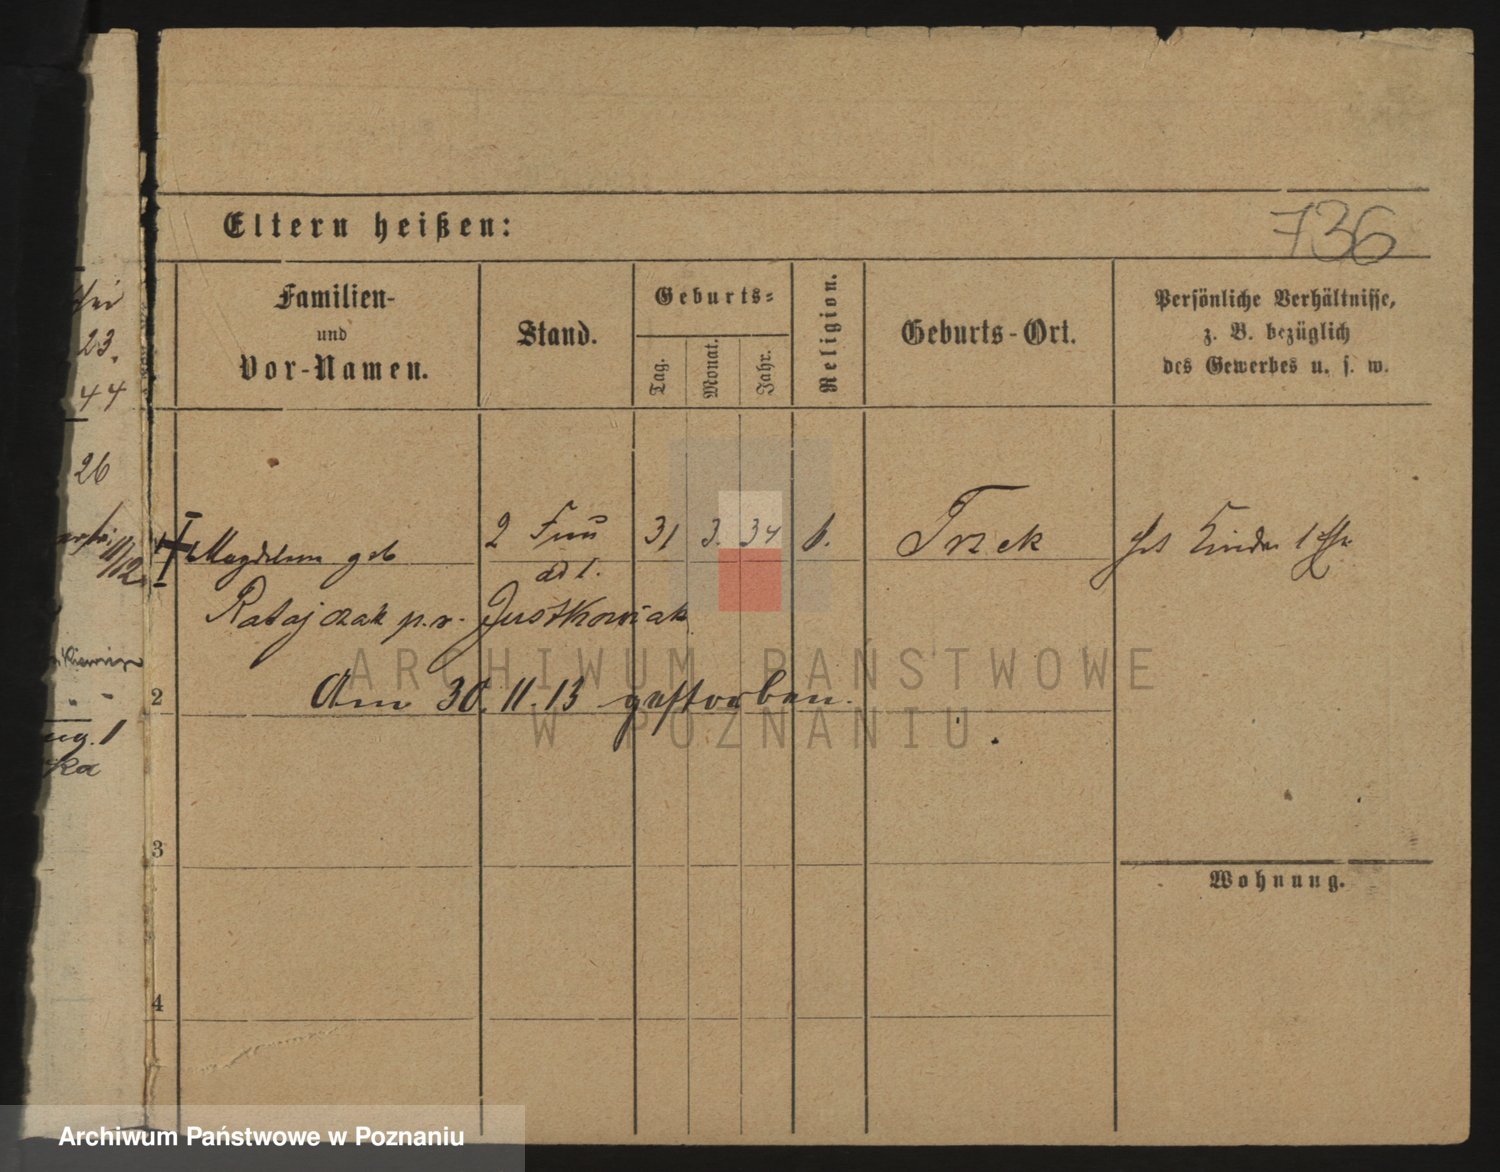 Eltern heißen:
736
Familien-
und
Vor-Namen.
Stand.
Geburts-
Tag.
Monat.
Jahr.
Religion.
Geburts-Ort.
Persönliche Verhältnisse,
z. B. bezüglich
des Gewerbes u. s. w.
23.
44
26
11/12
1
Magdalena geb
2 Frau
31
3.
34
k.
Trzek
hat Kinder 1 Ehe
ad 1.
Ratajczak p. v. Justkowiak
2
Am 30.11.13 gestorben.
ARCHIWUM PAŃSTWOWE
W POZNANIU
3
Wohnung.
4
Archiwum Państwowe w Poznaniu